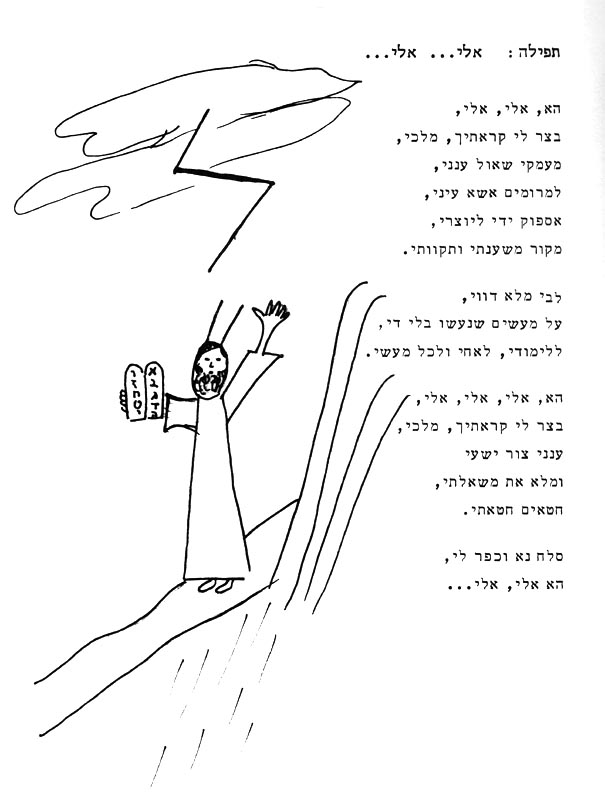 תפילה: אלי... אלי...
הא, אלי, אלי,
בצר לי קראתיך, מלכי,
מעמקי שאול ענני,
למרומים אשא עיני,
אספוק ידי ליוצרי,
מקור משענתי ותקוותי.
לבי מלא דווי,
על מעשים שנעשו בלי די,
ללימודי, לאחי ולכל מעשי.
הא, אלי, אלי, אלי,
בצר לי קראתיך, מלכי,
ענני צור ישעי
ומלא את משאלתי,
חטאים חטאתי.
סלח נא וכפר לי,
הא אלי, אלי...
א
ב
ג
ד
ה
ו
ז
ח
ט
י